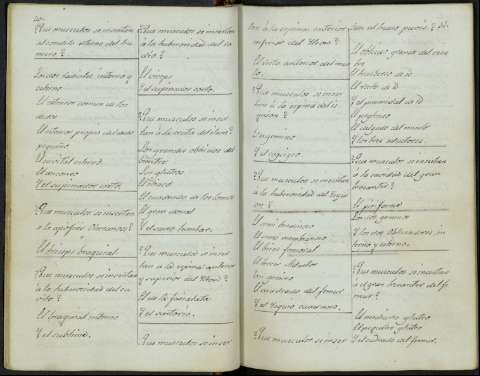 ¿Que musculos se insertan
al condilo esterno del hu
mero?
Los dos radiales, interno y
esterno
El estensor comun de los
dedos
El estensor propio del dedo
pequeño
El cubital esterno
El anconeo
Y el supinador corto
¿Que musculos se insertan
a la apofisis Olecranon?
El triceps braquial
¿Que musculos se insertan
a la tuberosidad del cu
vito?
El braquial interno
Y el sublime.
¿Que musculos se insertan
á la tuberosidad del ra
dio?
El biceps
Y el supinador corto.
¿Que musculos se inser
tan á la cresta del ileon?
Los grandes oblicuos del
vientre
Los gluteos
El iliaco
El cuadrado de los lomos
El gran dorsal
Y el sacro lumbar.
¿Que musculos se inser
tan á la espina anterior
y superior del Ileon?
El de la fascialata
Y el sartorio.
¿Que musculos se inser
tan á la espina anterior
inferior del Ileon?
El recto anterior del mus
lo.
¿Que musculos se inser
tan á la espina del is
quion?
El gemino
Y el coxigeo.
¿Que musculos se insertan
a la tuberosidad del Isqui
on?
El semi tendinoso
El semi membranoso
El biceps femoral
El tercer Aductor
Los geminos
El cuadrado del femur
Y el isquio cavernoso.
¿Que musculos se inser
tan al hueso pubis?
El oblicuo grande del vien
tre
El trasverso de id
El recto de id
Y el piramidal de id
El pectineo
El delgado del muslo
Y los tres aductores.
¿Que musculos se insertan
a la cavidad del gran
trocanter?
El piriforme
Los dos geminos
Y los dos Obturadores in
terno y esterno.
¿Que musculos se insertan
al gran trocanter del fe
mur?
El mediano gluteo
El pequeño gluteo
Y el cuadrado del femur.